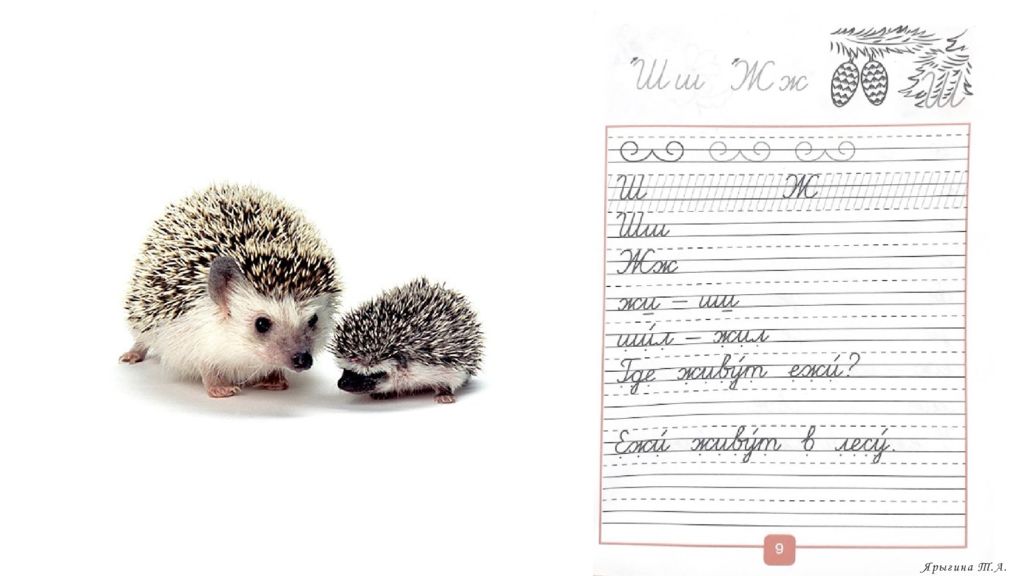 Шш Жж
Ш
Ш Ж
Шш
Жж
жи – ши
ши́л – жил
Где живу́т ежи́?
Ежи́ живу́т в лесу́.
9
Ярыгина Т.А.